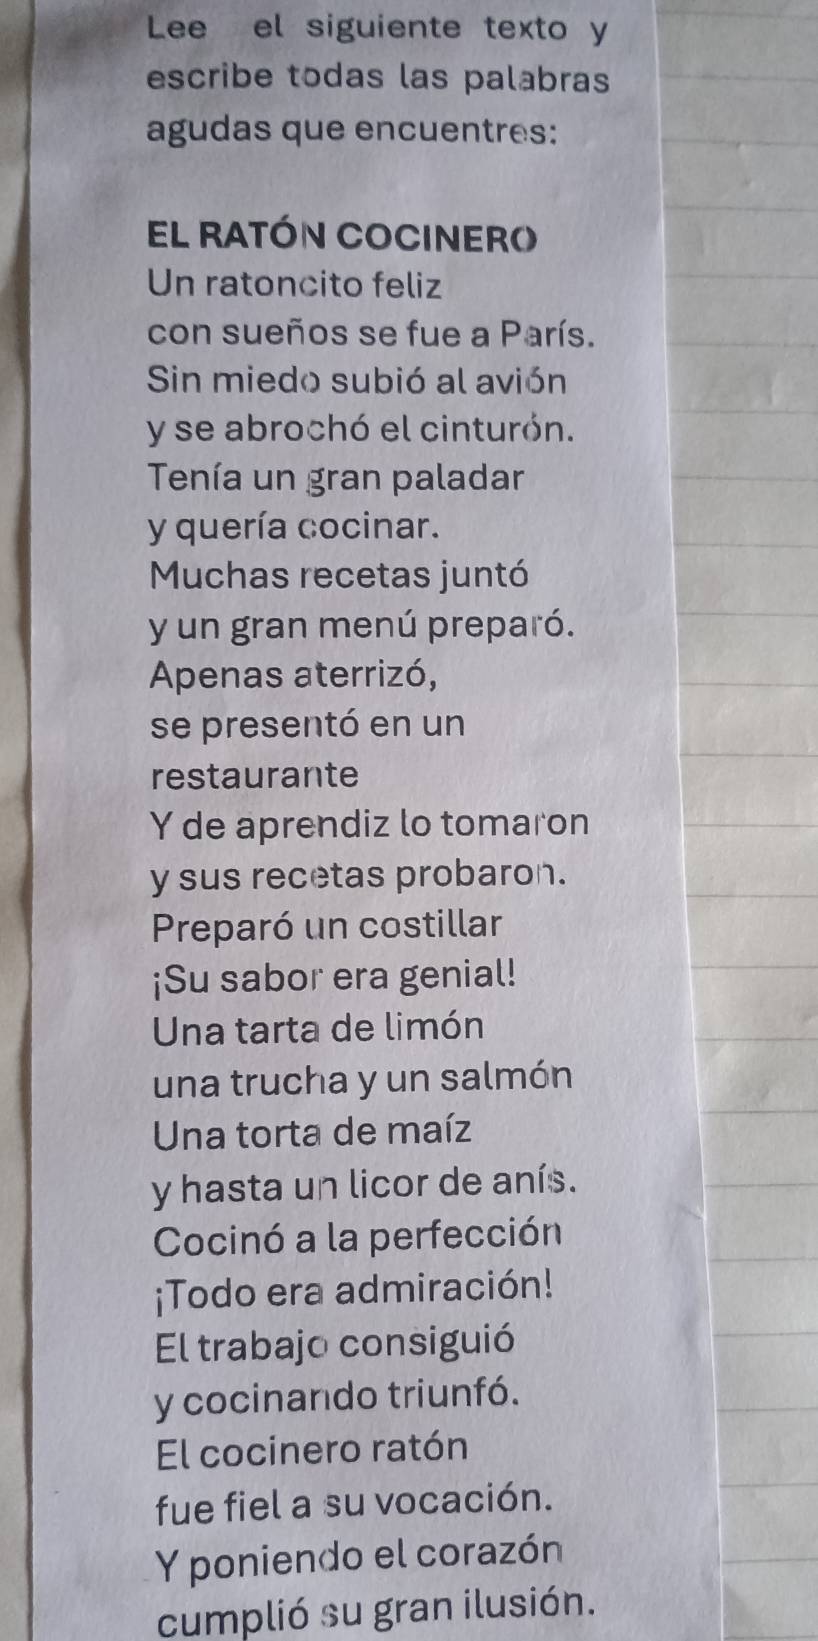 Lee el siguiente texto y
escribe todas las palabras
agudas que encuentres:
EL RATÓN COCINERO
Un ratoncito feliz
con sueños se fue a París.
Sin miedo subió al avión
y se abrochó el cinturón.
Tenía un gran paladar
y quería cocinar.
Muchas recetas juntó
y un gran menú preparó.
Apenas aterrizó,
se presentó en un
restaurante
Y de aprendiz lo tomaron
y sus recetas probaron.
Preparó un costillar
¡Su sabor era genial!
Una tarta de limón
una trucha y un salmón
Una torta de maíz
y hasta un licor de anís.
Cocinó a la perfección
¡Todo era admiración!
El trabajo consiguió
y cocinando triunfó.
El cocinero ratón
fue fiel a su vocación.
Y poniendo el corazón
cumplió su gran ilusión.